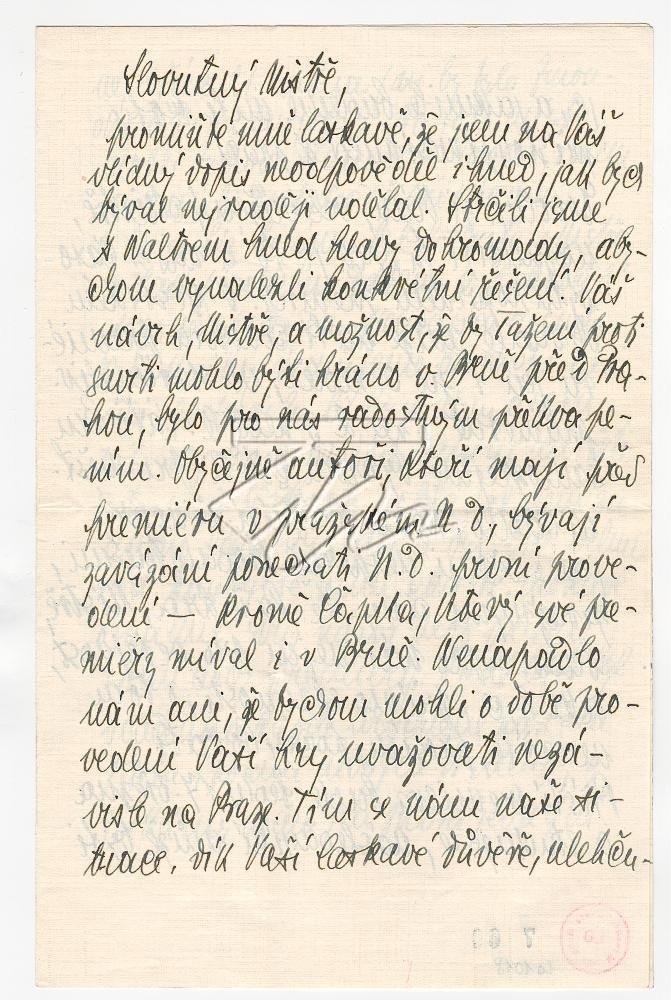 Slovutný Mistře,
promiňte mně laskavě, že jsem na Váš
vlídný dopis neodpověděl ihned, jak bych
býval nejraději udělal. Strčili jsme
s Waltrem hned hlavy dohromady, aby-
chom vynalezli konkrétní řešení. Váš
návrh, Mistře, a možnost, že by Tažení proti
smrti mohlo býti hráno v Brně před Pra-
hou, bylo pro nás radostným překvape-
ním. Obyčejně autoři, kteří mají před
premiéru v pražském N. D., bývají
zavázáni ponechati N. D. první prove-
dení — kromě Čapka, který své pre-
miéry míval i v Brně. Nenapadlo
nám ani, že bychom mohli o době pro-
vedení Vaší hry uvažovati nezá-
visle na Praze. Tím se nám naše si-
tuace, dík Vaší laskavé důvěře, ulehču-